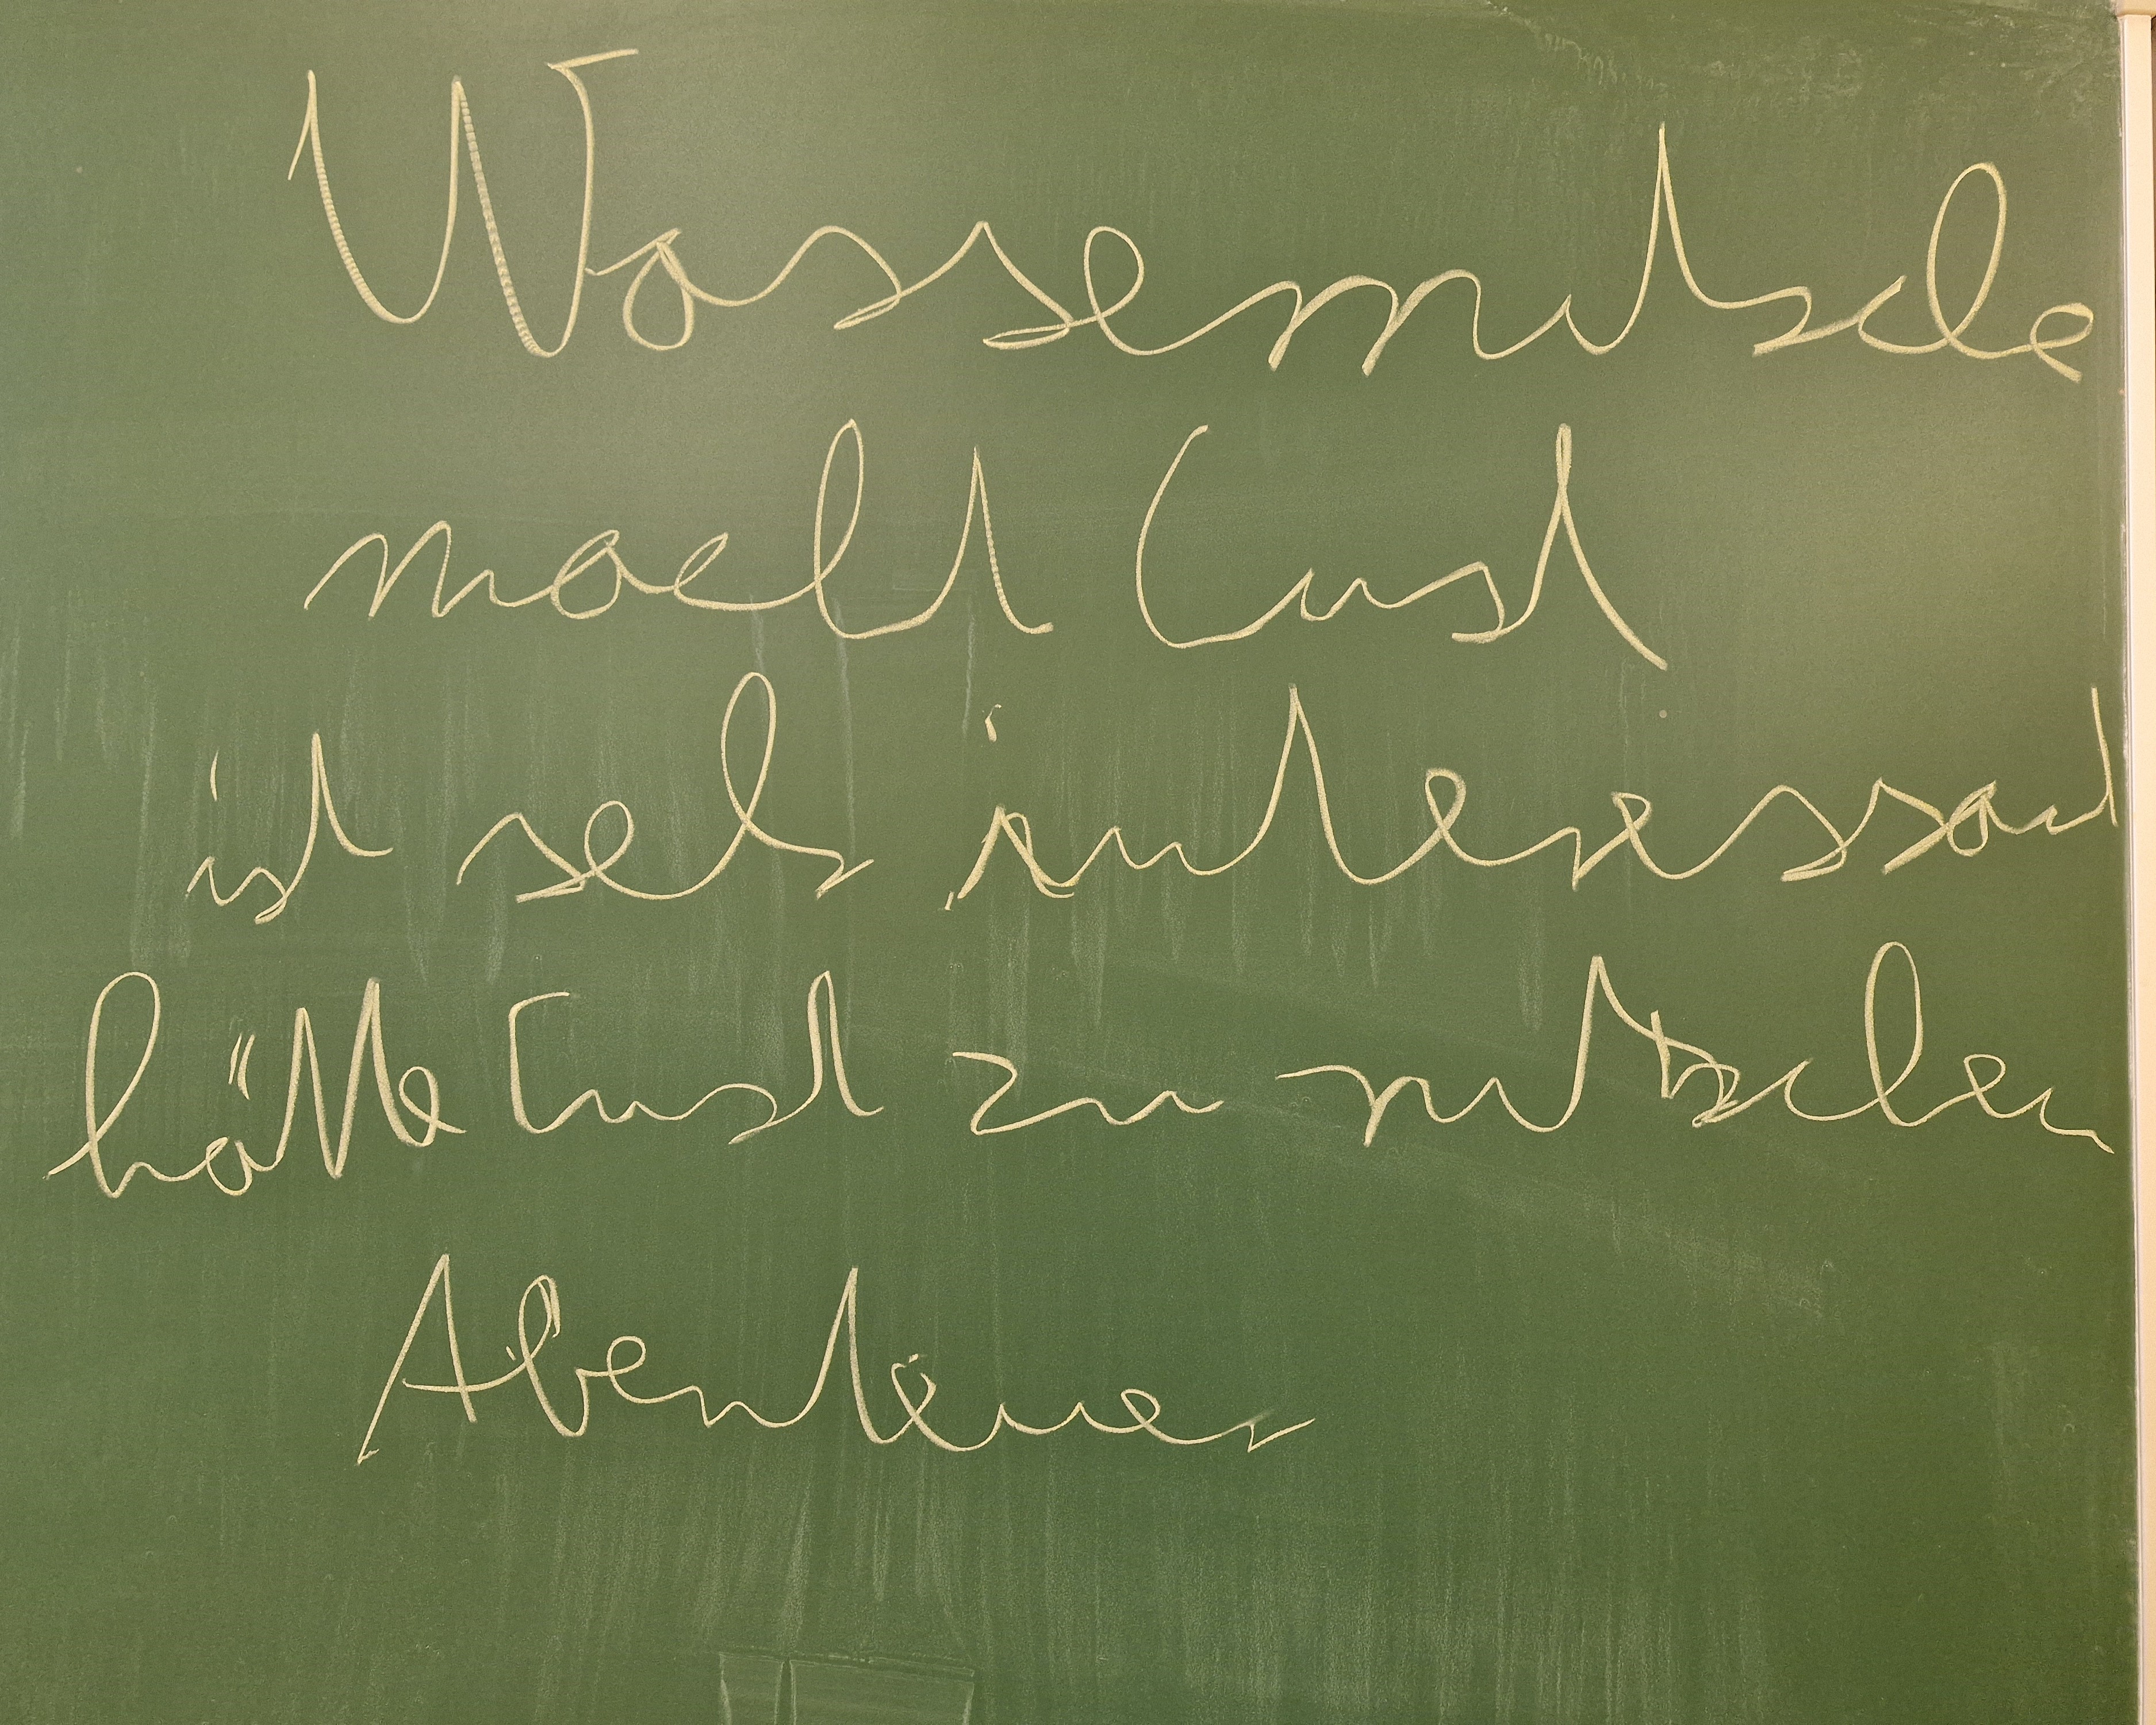 Wasserrutsche
macht Lust
ist sehr interessant
hätte Lust zu rutschen
Abenteuer